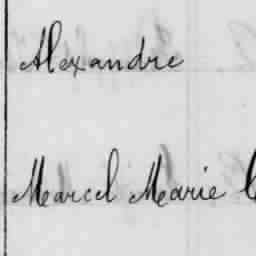 Alexandre
Marcel Marie